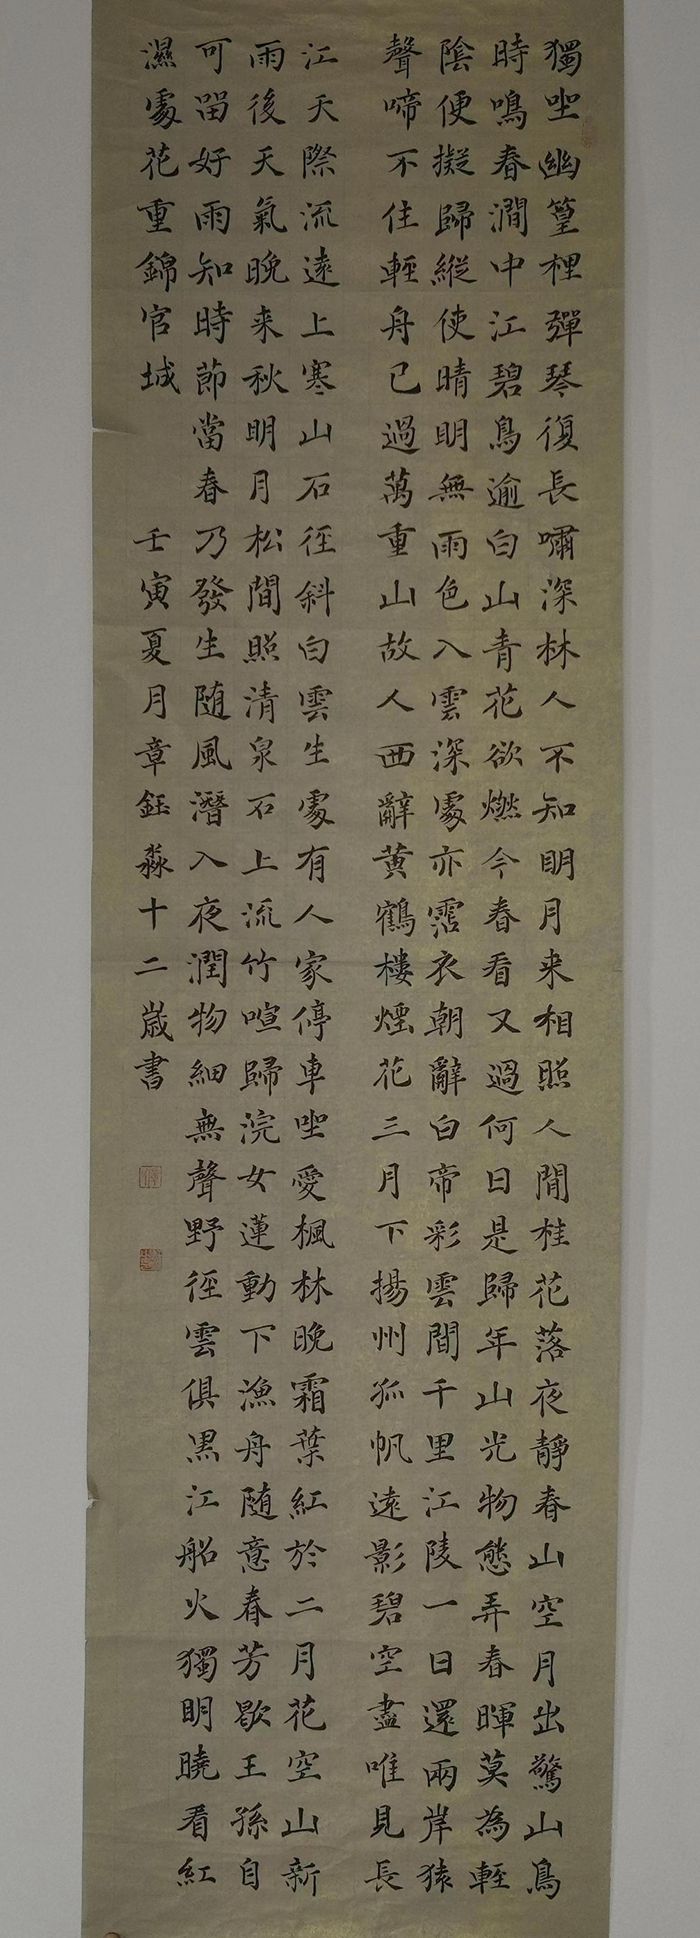 獨坐幽篁裡彈琴復長嘯深林人不知明月来相照人閒桂花落夜靜春山空月出驚山鳥
時鳴春澗中江碧鳥逾白山青花欲燃今春看又過何日是歸年山光物態弄春暉莫為輕
陰便擬歸縱使晴明無雨色入雲深處亦霑衣朝辭白帝彩雲間千里江陵一日還兩岸猿
聲啼不住輕舟已過萬重山故人西辭黃鶴樓煙花三月下揚州孤帆遠影碧空盡唯見長
江天際流遠上寒山石徑斜白雲生處有人家停車坐愛楓林晚霜葉紅於二月花空山新
雨後天氣晚来秋明月松間照清泉石上流竹喧歸浣女蓮動下漁舟随意春芳歇王孫自
可留好雨知時節當春乃發生随風潛入夜潤物細無聲野徑雲俱黑江船火獨明曉看紅
濕處花重錦官城
壬寅夏月章鈺淼十二歲書